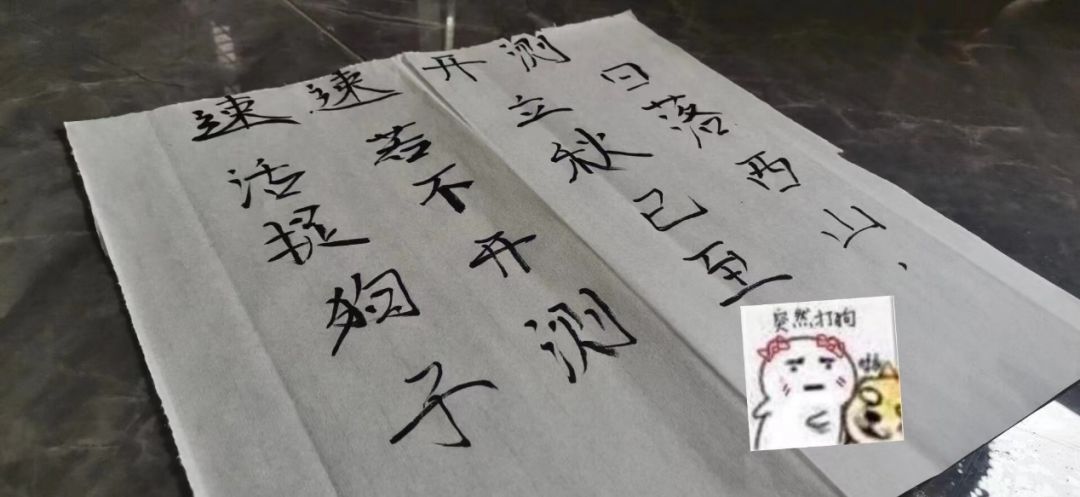 速速开测
日落西山、
立秋已至
若不开测
活捉狗子
突然打狗